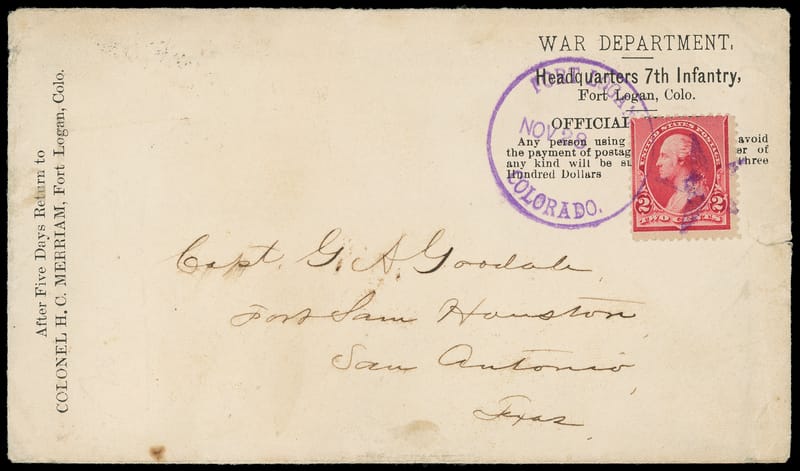 WAR DEPARTMENT,
Headquarters 7th Infantry,
Fort Logan, Colo.
OFFICIAL
Any person using avoid
the payment of postag er of
any kind will be su hree
Hundred Dollars
FORT LOGAN
NOV 28
COLORADO.
UNITED STATES POSTAGE
2 2
TWO CENTS
After Five Days Return to
COLONEL H. C. MERRIAM, Fort Logan, Colo.
Capt. G. A. Goodale,
Fort Sam Houston,
San Antonio,
Texas.